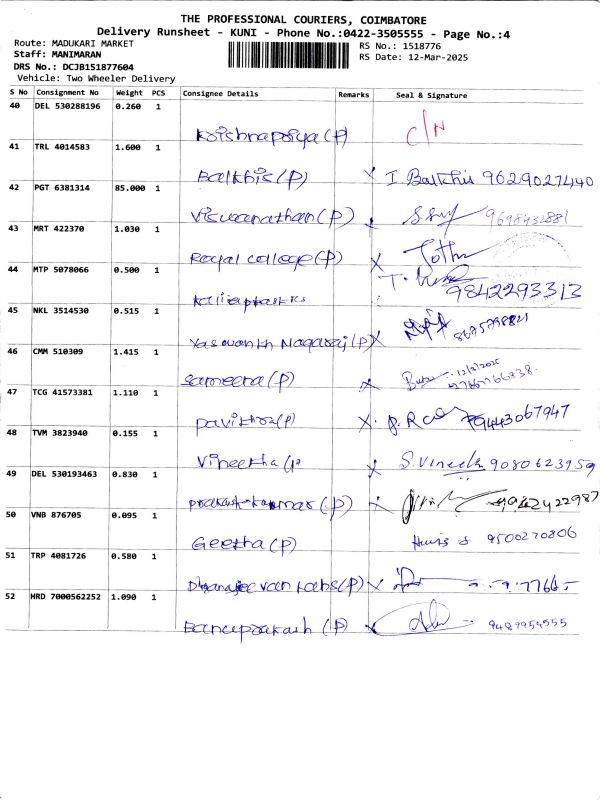 THE PROFESSIONAL COURIERS, COIMBATORE
Delivery Runsheet - KUNI - Phone No.:0422-3505555 - Page No.:4
Route: MADUKARI MARKET
RS No.: 1518776
Staff: MANIMARAN
RS Date: 12-Mar-2025
DRS No.: DCJB151877604
Vehicle: Two Wheeler Delivery
S No Consignment No Weight PCS Consignee Details Remarks Seal & Signature
40 DEL 530288196 0.260 1
Krishnapriya (P) C/N
41 TRL 4014583 1.600 1
Balkhis (P) X I. Balkhis 9629027440
42 PGT 6381314 85.000 1
Viswanathan (P) 9698432881
43 MRT 422370 1.030 1
Royal college (P) X
44 MTP 5078066 0.500 1
9842293313
45 NKL 3514530 0.515 1
Yaswanth Nagaraj (P) X 8675798821
46 CMM 510309 1.415 1
Sameera (P) X 12/3/2025
47 TCG 41573381 1.110 1
Pavithra (P) X 9443067947
48 TVM 3823940 0.155 1
Vineetha (P X S. Vineeth 9080623959
49 DEL 530193463 0.830 1
Prakash kumar (P) X
50 VNB 876705 0.095 1
Geetha (P) 9500270806
51 TRP 4081726 0.580 1
(P) X
52 HRD 7000562252 1.090 1
Banuprakash (P) X 9489954555